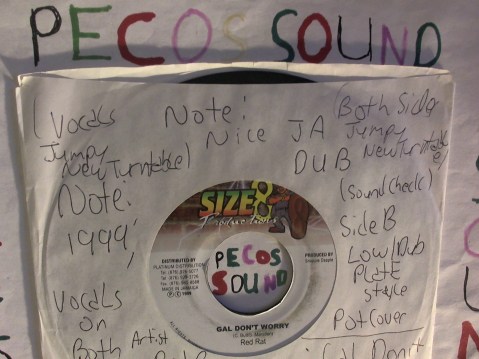 PECOS SOUND
(Vocals
Jumpy
New Turntable)
Note:
1999,
Vocals
on
Both Artist
Note:
Nice JA
DUB
(Both Side
Jumpy
New Turntable
(Sound Check)
Side B
Low/Dub
Plate
style
Pot Cover
Gal Don't
SIZE 8
Productions
DISTRIBUTED BY
PLATINUM DISTRIBUTION
MADE IN JAMAICA
PRODUCED BY
PECOS
SOUND
GAL DON'T WORRY
Red Rat